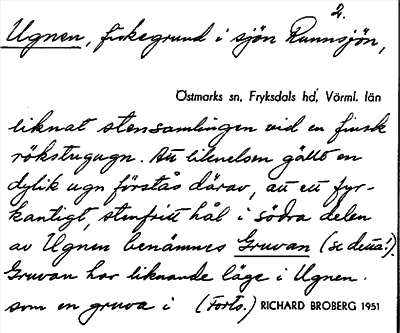 2.
Ugnen, fiskegrund i sjön Runnsjön,
Östmarks sn, Fryksdals hd, Värml. län
liknat stensamlingen vid en finsk
rökstugugn. Att liknelsen gällt en
dylik ugn förstås därav, att ett fyr-
kantigt, stenfritt hål i södra delen
av Ugnen benämnes Gruvan (se detta!).
Gruvan har liknande läge i Ugnen
som en gruva i (Forts.) RICHARD BROBERG 1951